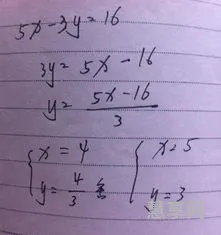 5x-3y=16
3y=5x-16
y=\frac{5x-16}{3}
\begin{cases} x=4 \\ y=\frac{4}{3} \end{cases} \begin{cases} x=5 \\ y=3 \end{cases}